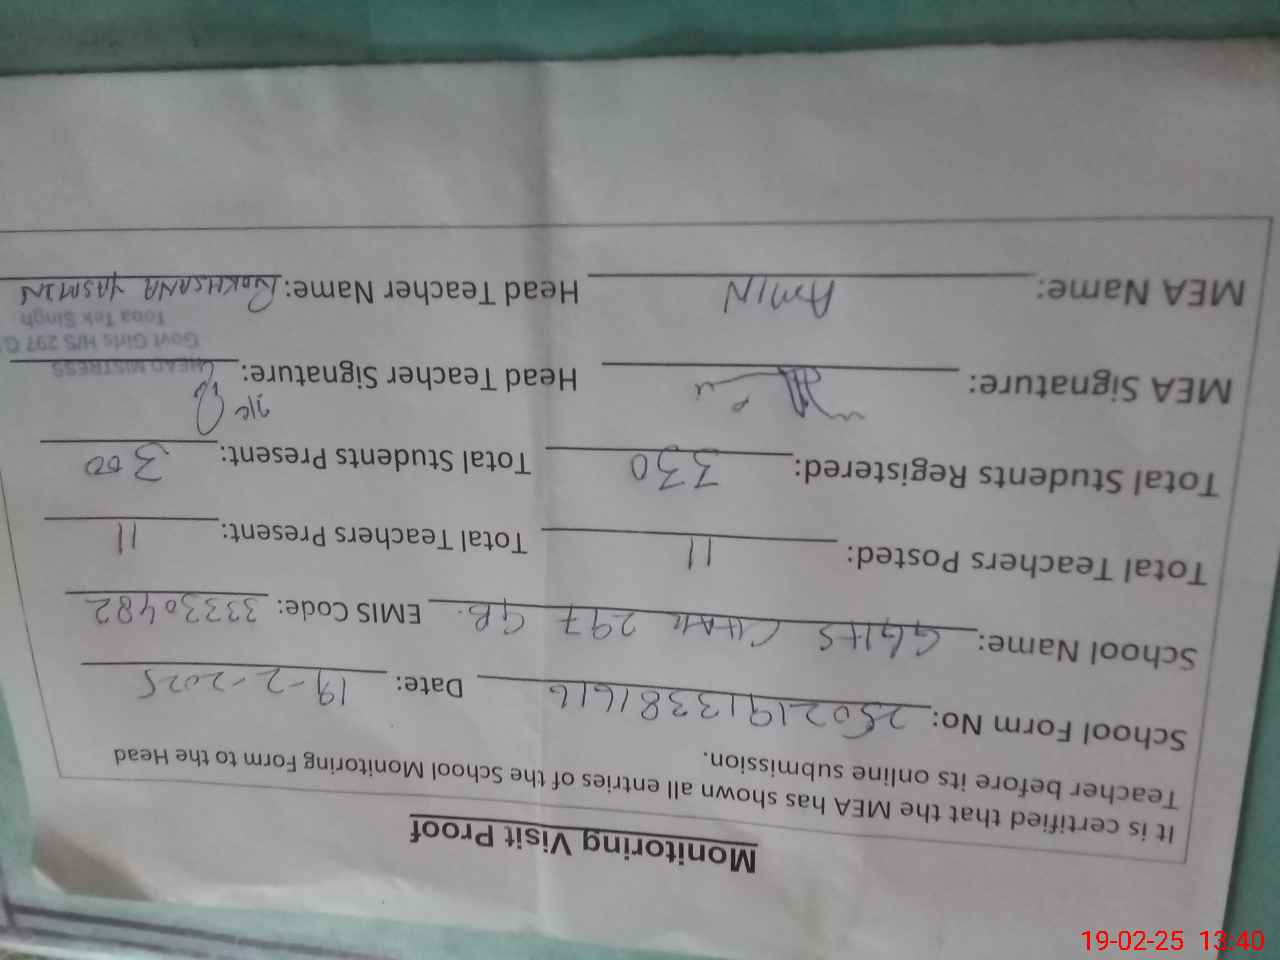 Monitoring Visit Proof
It is certified that the MEA has shown all entries of the School Monitoring Form to the Head
Teacher before its online submission.
School Form No: 250219133816116 Date: 19-2-2025
School Name: GGHS CHAK 297 GB. EMIS Code: 33330482
Total Teachers Posted: 11 Total Teachers Present: 11
Total Students Registered: 330 Total Students Present: 300
MEA Signature: Head Teacher Signature:
HEAD MISTRESS
Govt Girls H/S 297 G
Toba Tek Singh
MEA Name: AMIN Head Teacher Name: ROOKHSANA YASMIN
19-02-25 13:40